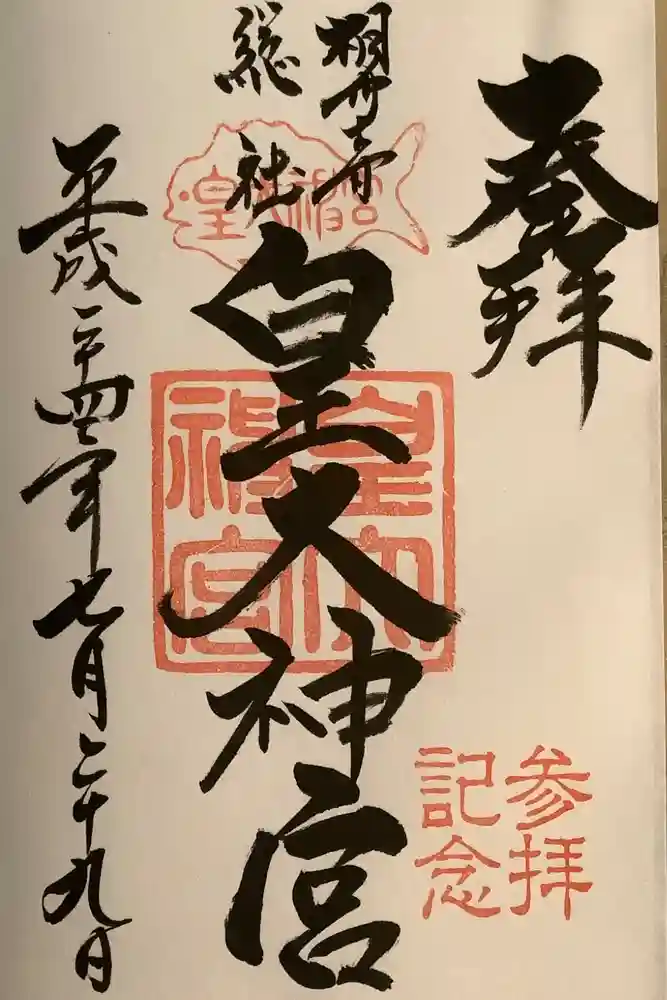 奉拝
総社
皇大神宮
平成二十四年七月二十九日
皇大神宮
皇大神宮
参拝
記念